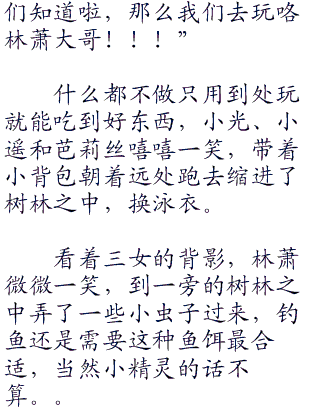 们知道啦，那么我们去玩咯
林萧大哥！！！”
什么都不做只用到处玩
就能吃到好东西，小光、小
遥和芭莉丝嘻嘻一笑，带着
小背包朝着远处跑去缩进了
树林之中，换泳衣。
看着三女的背影，林萧
微微一笑，到一旁的树林之
中弄了一些小虫子过来，钓
鱼还是需要这种鱼饵最合
适，当然小精灵的话不
算。。